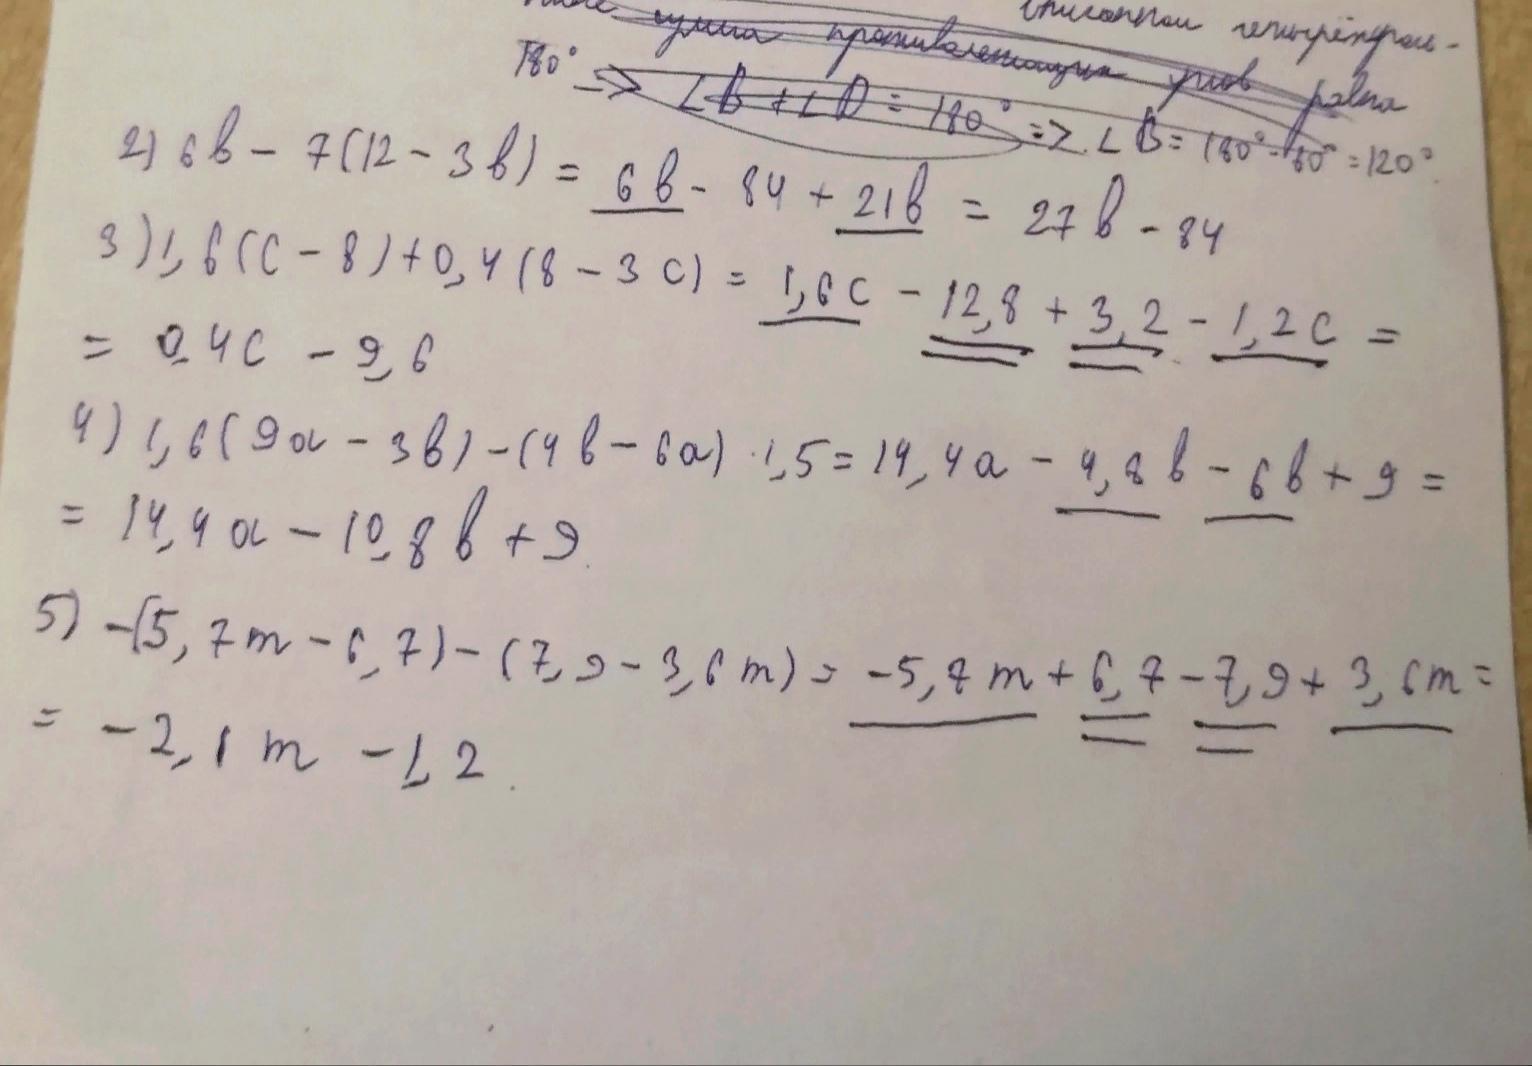 вписанном четырёхуголь-
нике сумма противолежащих углов равна
180° => ∠B + ∠D = 180° => ∠B = 180° - 60° = 120°
2) 6b - 7(12 - 3b) = 6b - 84 + 21b = 27b - 84
3) 1,6(c - 8) + 0,4(8 - 3c) = 1,6c - 12,8 + 3,2 - 1,2c =
= 0,4c - 9,6
4) 1,6(9a - 3b) - (4b - 6a) · 1,5 = 14,4a - 4,8b - 6b + 9 =
= 14,4a - 10,8b + 9.
5) -(5,7m - 6,7) - (7,9 - 3,6m) = -5,7m + 6,7 - 7,9 + 3,6m =
= -2,1m - 1,2.